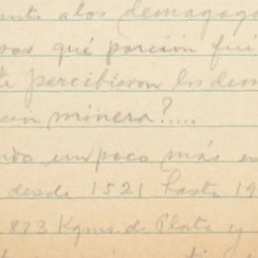 ante a los demagogo
sos qué porción fué
te percibieron los dem
cion minera?....
ndo un poco más e
desde 1521 hasta 19
873 Kgms. de Plata y